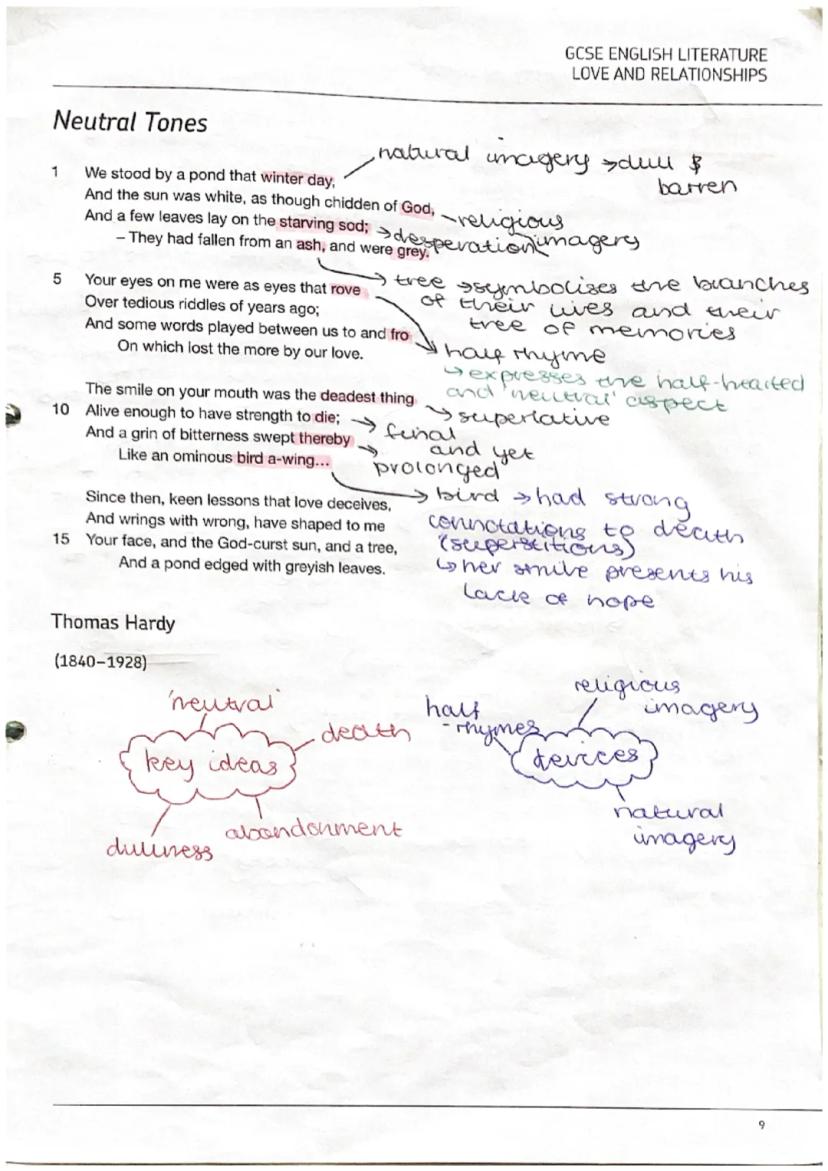 GCSE ENGLISH LITERATURE
LOVE AND RELATIONSHIPS
Neutral Tones
natural imagery → dull &
barren
1 We stood by a pond that winter day,
And the sun was white, as though chidden of God,
– religious
imagery
And a few leaves lay on the starving sod;
→ desperation
– They had fallen from an ash, and were grey.
→ tree → symbolises the branches
of their lives and their
tree of memories
5 Your eyes on me were as eyes that rove
Over tedious riddles of years ago;
And some words played between us to and fro
On which lost the more by our love.
half rhyme
↳ expresses the half-hearted
and 'neutral' aspect
The smile on your mouth was the deadest thing
→ superlative
10 Alive enough to have strength to die;
→ final
and yet
prolonged
And a grin of bitterness swept thereby
Like an ominous bird a-wing...
→ bird → had strong
connotations to death
(superstitions)
↳ her smile presents his
lack of hope
Since then, keen lessons that love deceives,
And wrings with wrong, have shaped to me
15 Your face, and the God-curst sun, and a tree,
And a pond edged with greyish leaves.
Thomas Hardy
(1840–1928)
'neutral'
death
key ideas
abandonment
dullness
religious
imagery
half
-rhymes
devices
natural
imagery
9